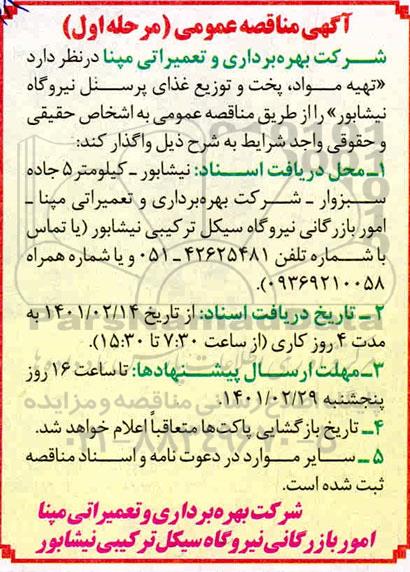 آگهی مناقصه عمومی (مرحله اول)
شرکت بهره‌برداری و تعمیراتی مپنا در نظر دارد
«تهیه مواد، پخت و توزیع غذای پرسنل نیروگاه
نیشابور» را از طریق مناقصه عمومی به اشخاص حقیقی
و حقوقی واجد شرایط به شرح ذیل واگذار کند:
۱ـ محل دریافت اسناد: نیشابور ـ کیلومتر ۵ جاده
سبزوار ـ شرکت بهره‌برداری و تعمیراتی مپنا ـ
امور بازرگانی نیروگاه سیکل ترکیبی نیشابور (یا تماس
با شماره تلفن ۴۲۶۲۵۴۸۱ ـ ۰۵۱ و یا شماره همراه
۰۹۳۶۹۲۱۰۰۵۸).
۲ـ تاریخ دریافت اسناد: از تاریخ ۱۴۰۱/۰۲/۱۴ به
مدت ۴ روز کاری (از ساعت ۷:۳۰ تا ۱۵:۳۰).
۳ـ مهلت ارسال پیشنهادها: تا ساعت ۱۶ روز
پنجشنبه ۱۴۰۱/۰۲/۲۹.
۴ـ تاریخ بازگشایی پاکت‌ها متعاقباً اعلام خواهد شد.
۵ـ سایر موارد در دعوت نامه و اسناد مناقصه
ثبت شده است.
شرکت بهره‌برداری و تعمیراتی مپنا
امور بازرگانی نیروگاه سیکل ترکیبی نیشابور